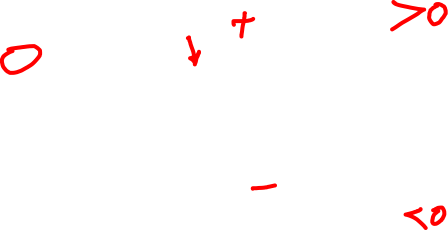 + >0
0 ↓
−
<0